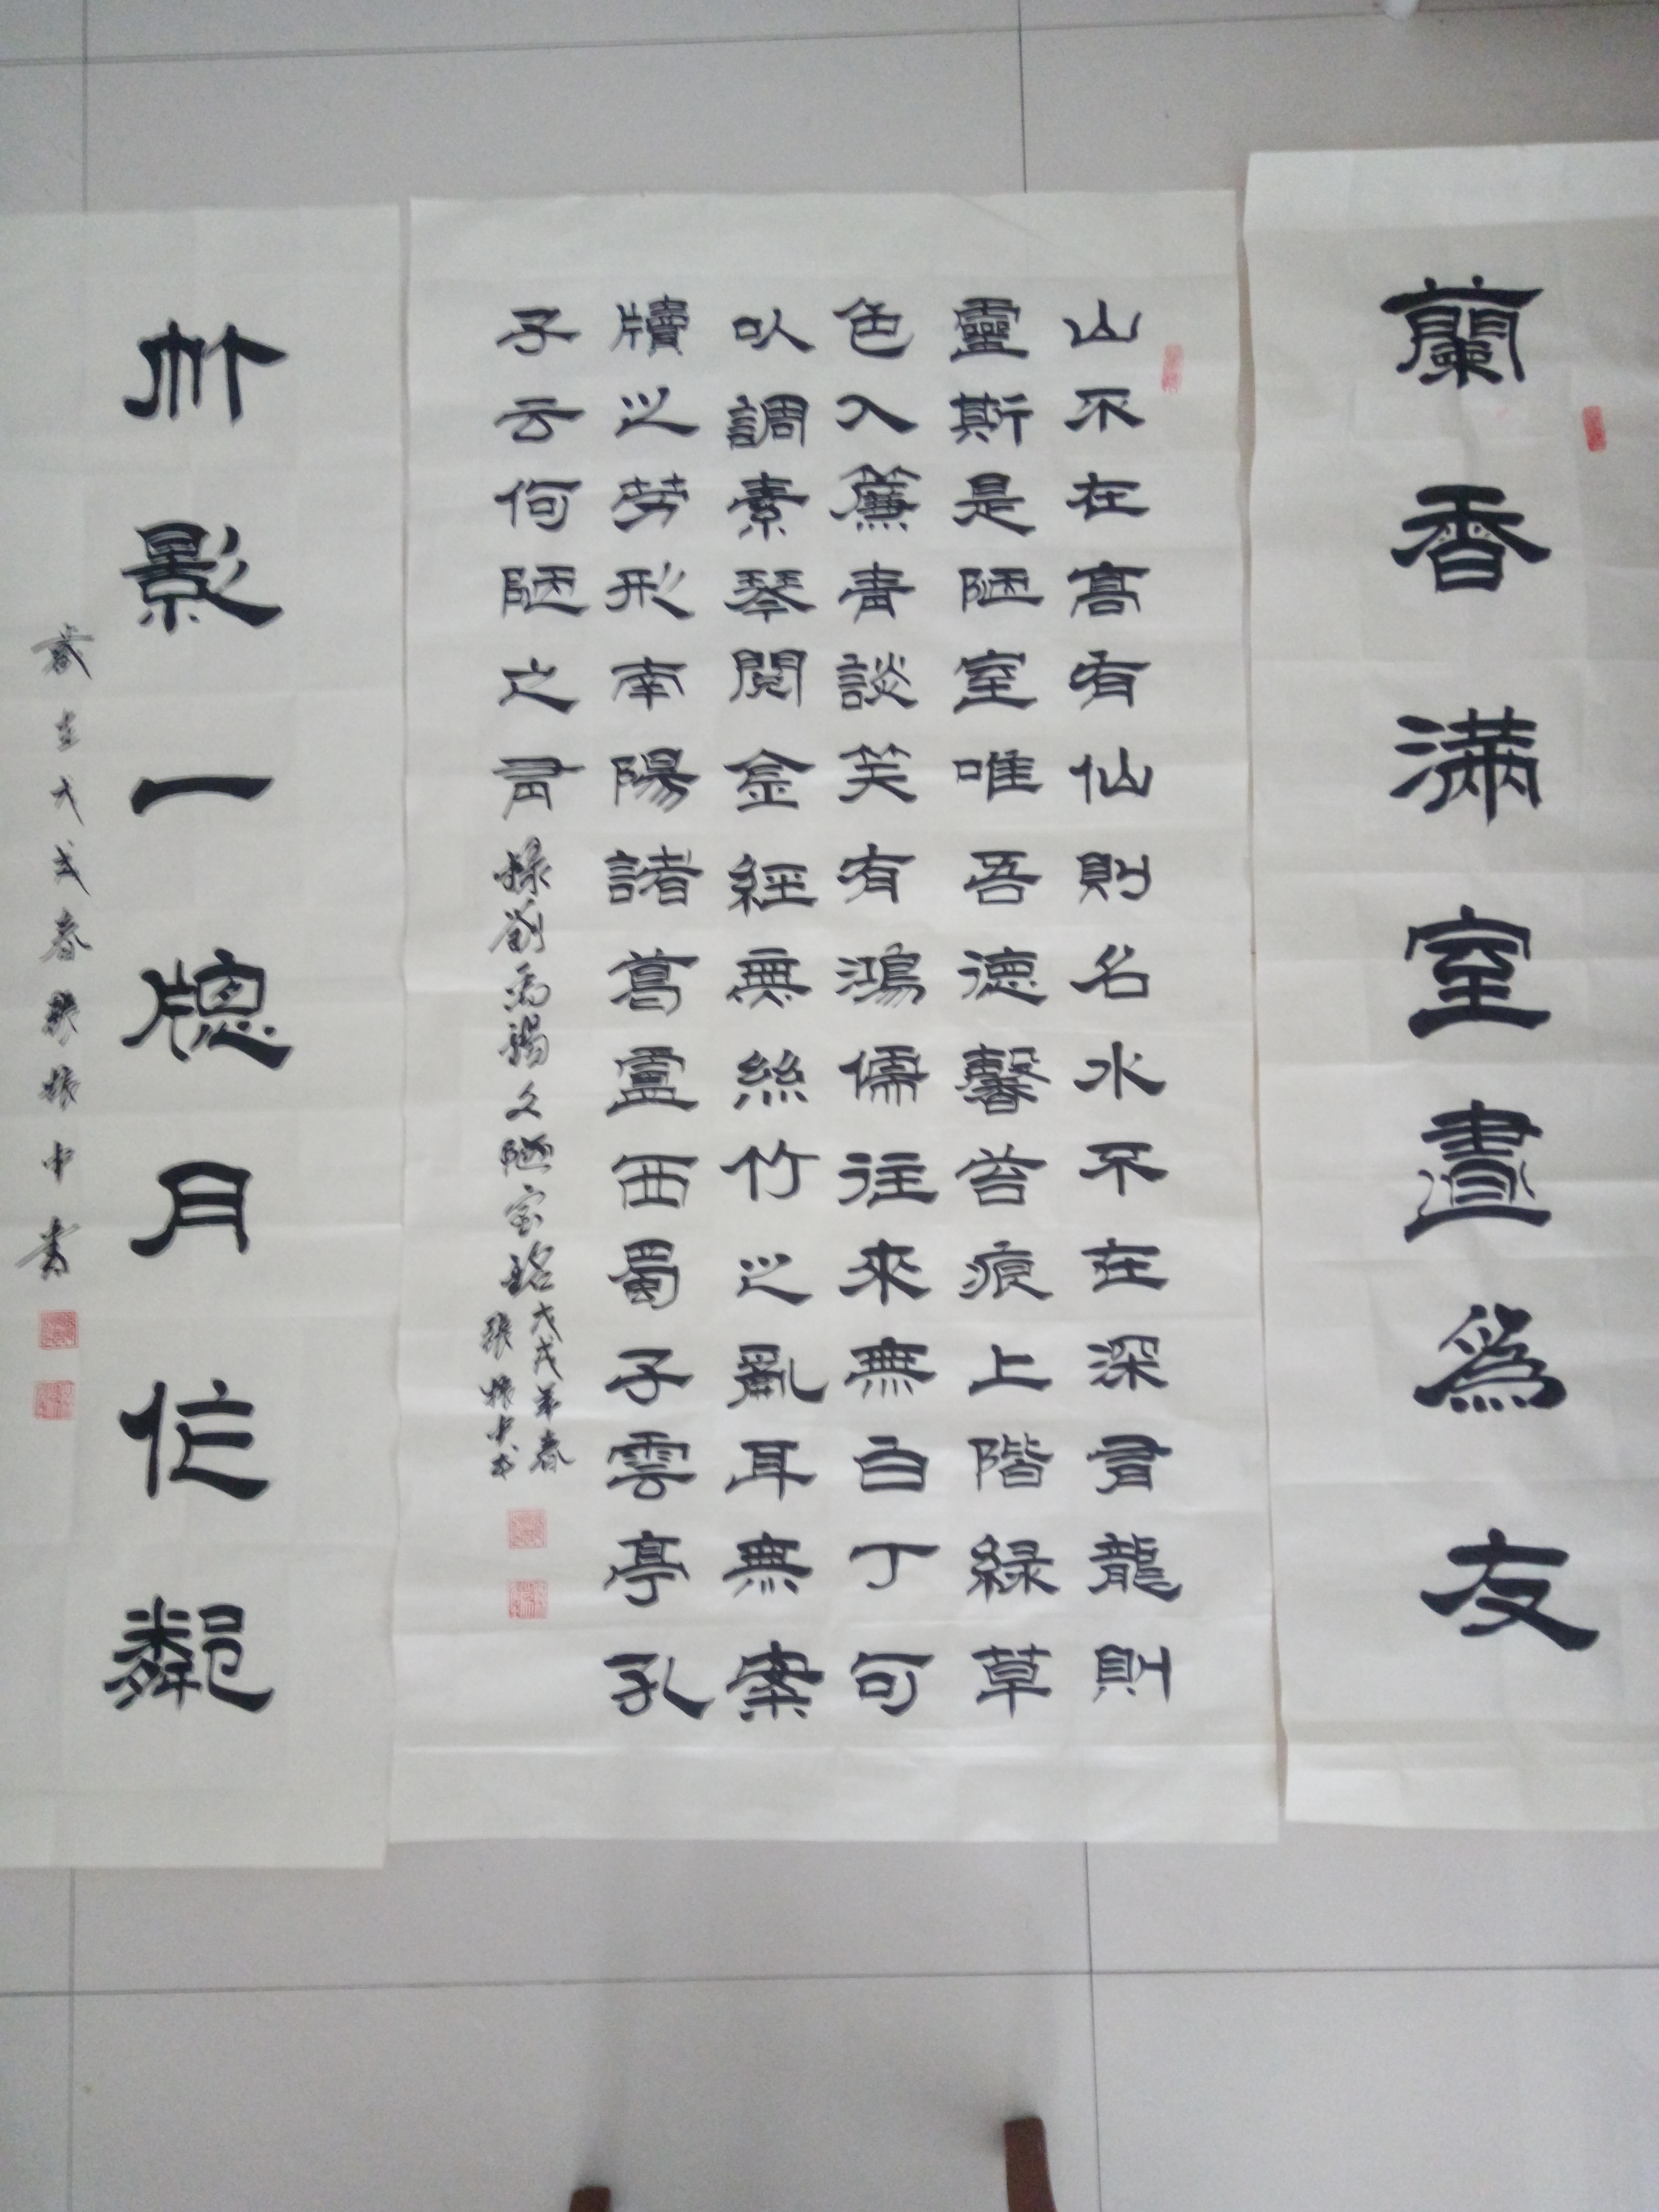 蘭香滿室晝爲友
山不在高有仙則名水不在深有龍則
靈斯是陋室唯吾德馨苔痕上階綠草
色入簾青談笑有鴻儒往來無白丁可
以調素琴閱金經無絲竹之亂耳無案
牘之勞形南陽諸葛盧西蜀子雲亭孔
子云何陋之有 錄劉禹錫文陋室銘
戊戌年春
張振中書
竹影一牕月作鄰
歲在戊戌春張振中書